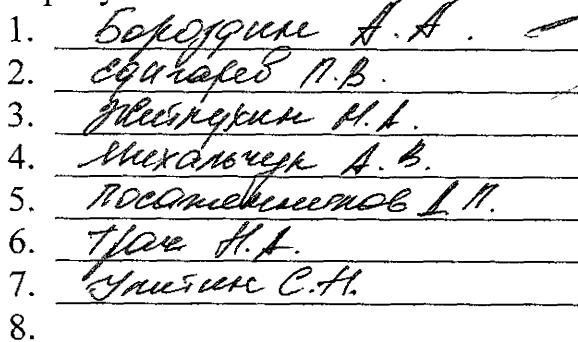 1. Бороздин А.А.
2. Едигарев П.В.
3. Жейнухин Н.А.
4. Михальчук А.В.
5. Посаженников Д.П.
6. Трач Н.А.
7. Унитин С.Н.
8.